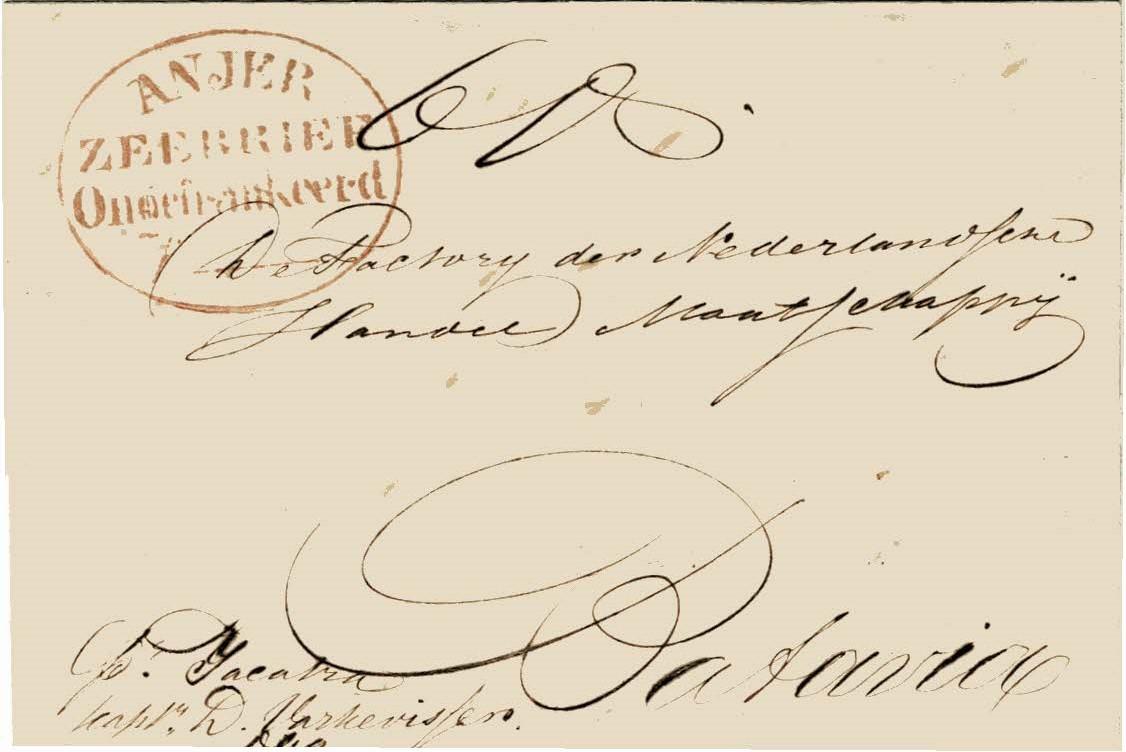 ANJER
ZEEBRIEF
Ongefrankeerd
De Factory der Nederlandsche
Handel Maatschappij
Batavia
pr. Jacatra
kaptn. D. Varkevisser.